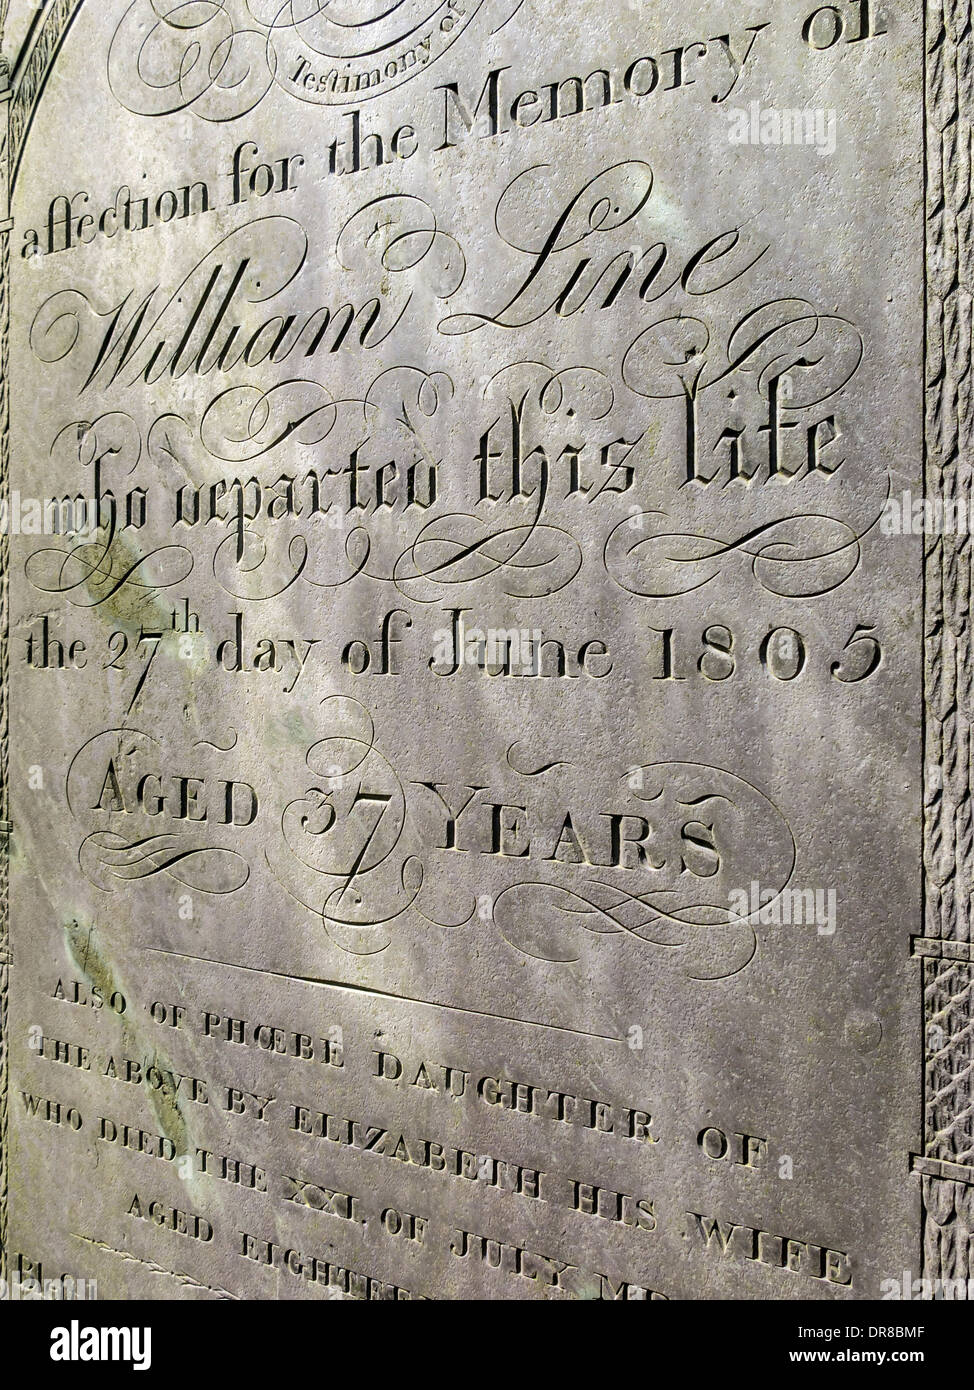 Testimony of
affection for the Memory of
William Line
who departed this life
the 27th day of June 1805
AGED 37 YEARS
ALSO OF PHŒBE DAUGHTER OF
THE ABOVE BY ELIZABETH HIS WIFE
WHO DIED THE XXI. OF JULY
AGED
alamy
Image ID: DR8BMF
www.alamy.com